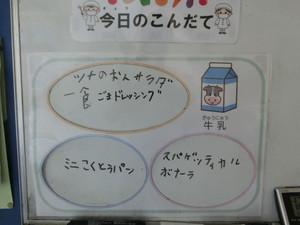 今日のこんだて
ツナのおんサラダ
一食ごまドレッシング
ぎゅうにゅう
牛乳
ミニこくとうパン
スパゲッティカル
ボナーラ